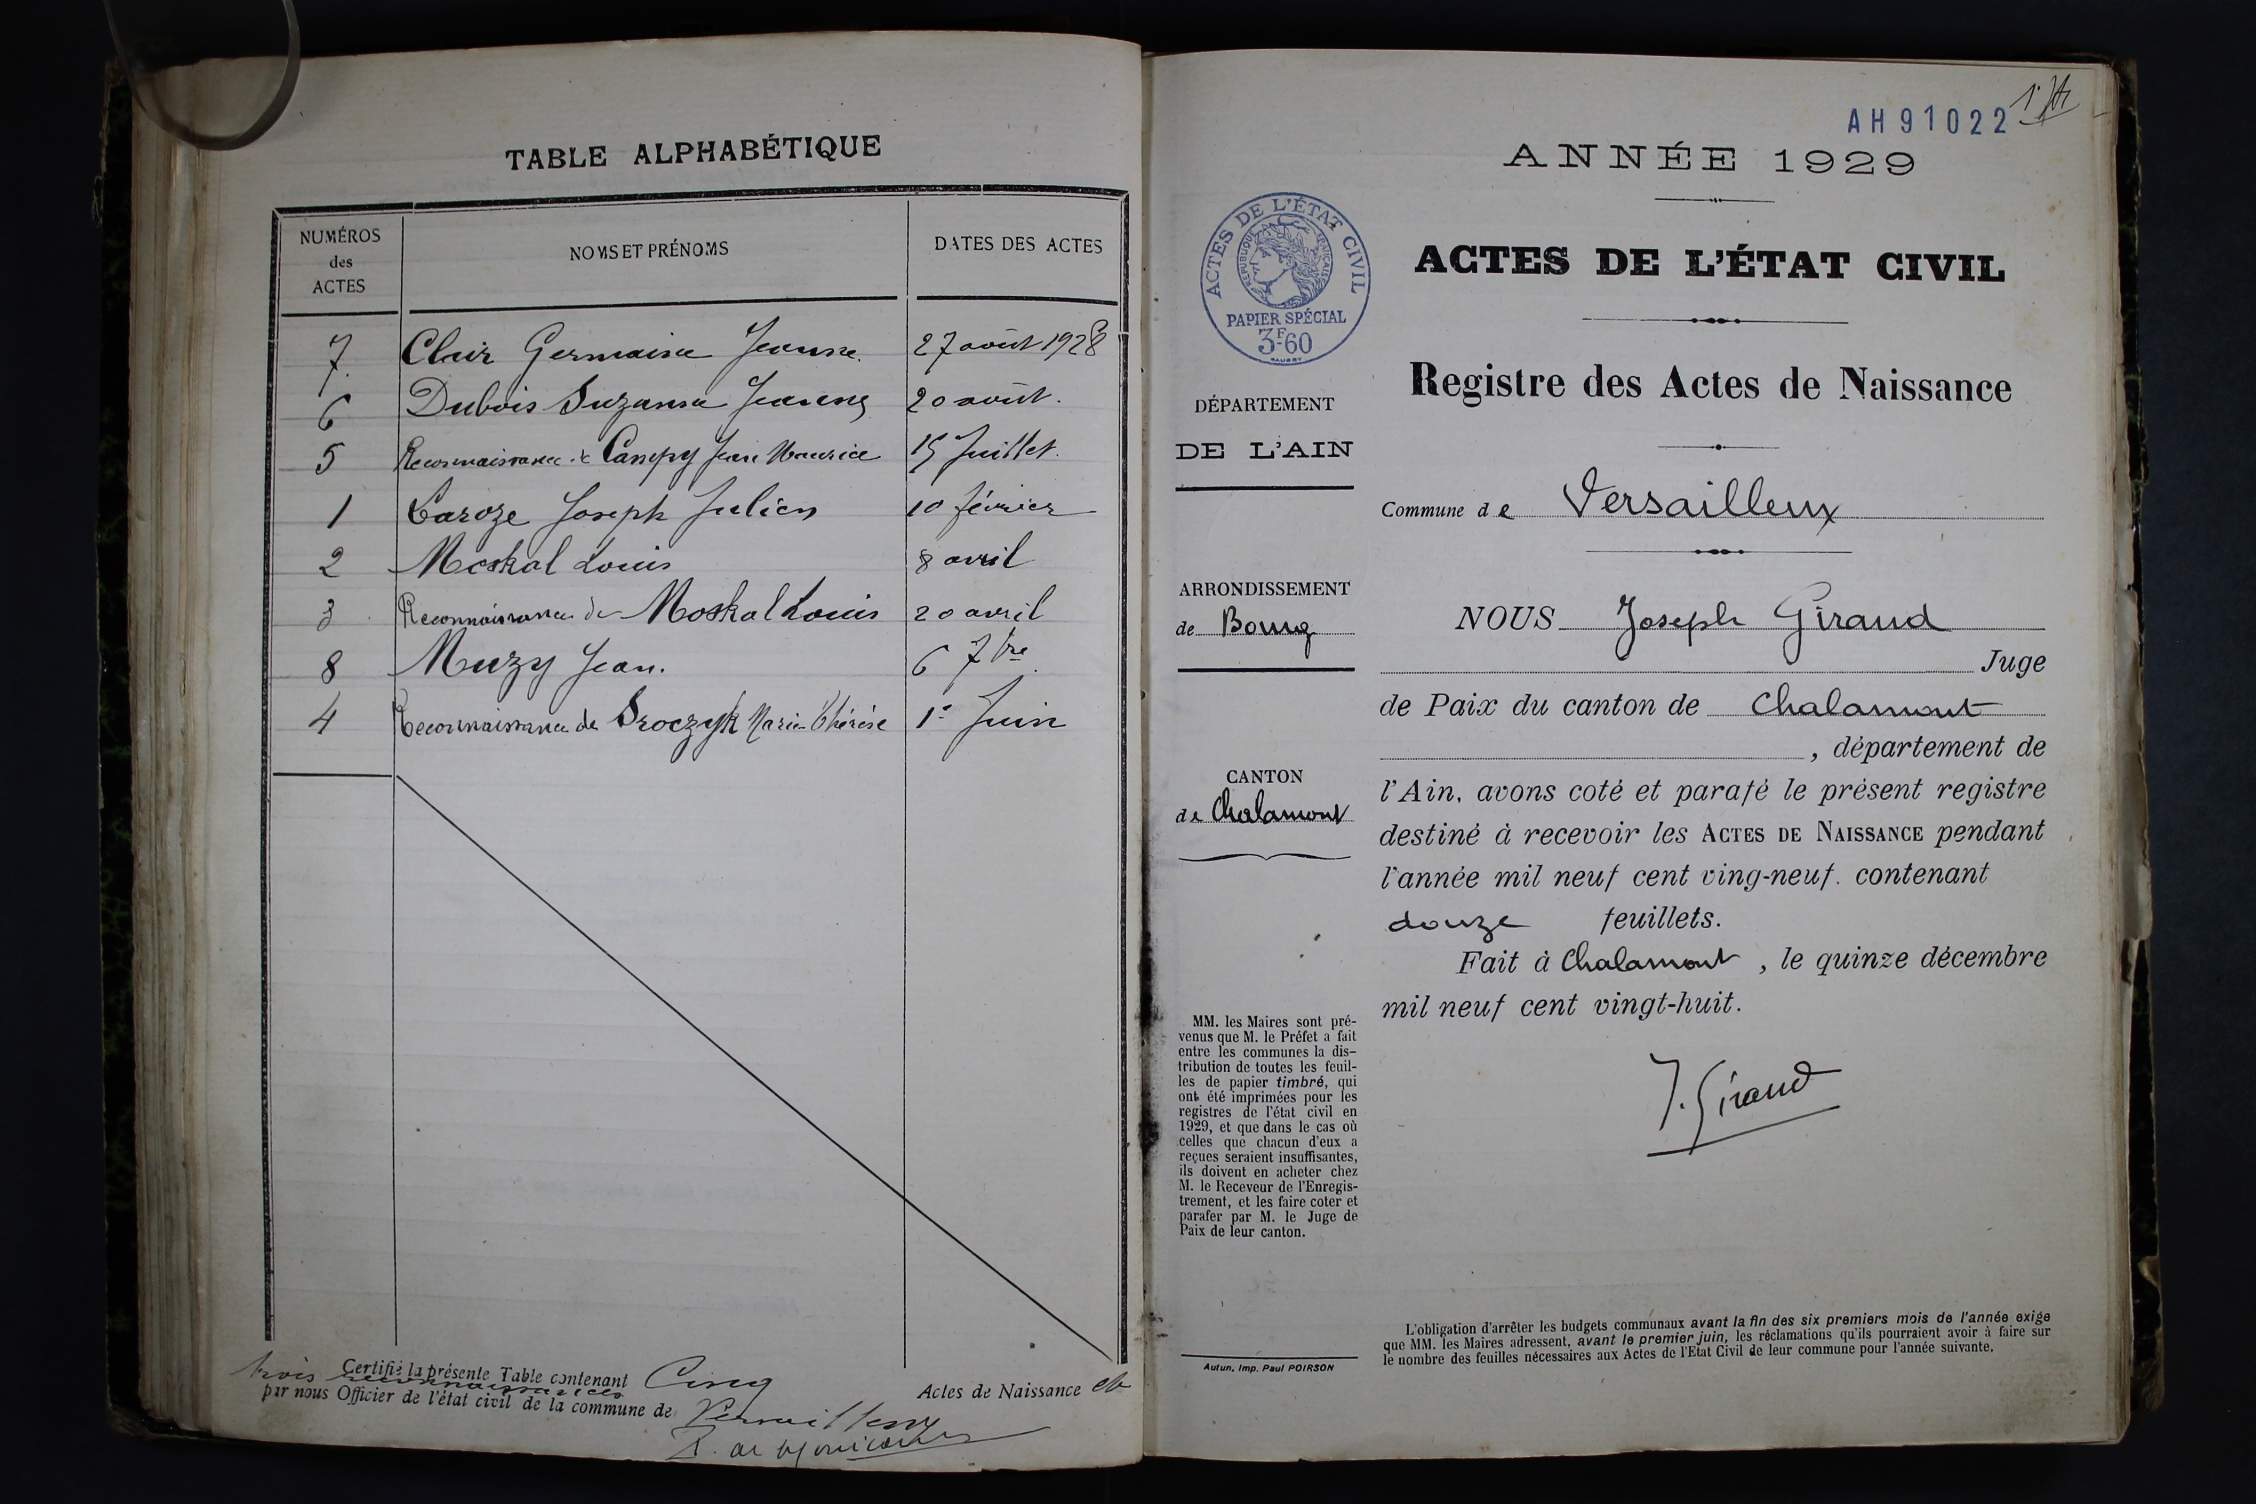 TABLE ALPHABÉTIQUE
NUMÉROS des ACTES
NOMS ET PRÉNOMS
DATES DES ACTES
7 Clair Germaine Jeanne 27 août 1928
6 Dubois Suzanne Jeanne 20 août.
5 Reconnaissance de Canepy Jean Maurice 15 Juillet.
1 Laroze Joseph Julien 10 février
2 Moskal Louis 8 avril
3 Reconnaissance de Moskal Louis 20 avril
8 Muzy Jean. 6 7bre
4 Reconnaissance de Sroczyk Marie-Thérèse 1er Juin
Certifié la présente Table contenant Cinq Actes de Naissance et
trois reconnaissances
par nous Officier de l'état civil de la commune de Versailleux
AH91022
ANNÉE 1929
ACTES DE L'ÉTAT CIVIL
RÉPUBLIQUE FRANÇAISE
PAPIER SPÉCIAL
3F-60
ACTES DE L'ÉTAT CIVIL
Registre des Actes de Naissance
DÉPARTEMENT
DE L'AIN
Commune de Versailleux
ARRONDISSEMENT
de Bourg
CANTON
de Chalamont
NOUS Joseph Giraud
Juge
de Paix du canton de Chalamont
, département de
l'Ain, avons coté et parafé le présent registre
destiné à recevoir les ACTES DE NAISSANCE pendant
l'année mil neuf cent ving-neuf. contenant
douze feuillets.
Fait à Chalamont, le quinze décembre
mil neuf cent vingt-huit.
J. Giraud
MM. les Maires sont pré-
venus que M. le Préfet a fait
entre les communes la dis-
tribution de toutes les feuil-
les de papier timbré, qui
ont été imprimées pour les
registres de l'état civil en
1929, et que dans le cas où
celles que chacun d'eux a
reçues seraient insuffisantes,
ils doivent en acheter chez
M. le Receveur de l'Enregis-
trement, et les faire coter et
parafer par M. le Juge de
Paix de leur canton.
Autun, Imp. Paul POIRSON
L'obligation d'arrêter les budgets communaux avant la fin des six premiers mois de l'année exige
que MM. les Maires adressent, avant le premier juin, les réclamations qu'ils pourraient avoir à faire sur
le nombre des feuilles nécessaires aux Actes de l'Etat Civil de leur commune pour l'année suivante.